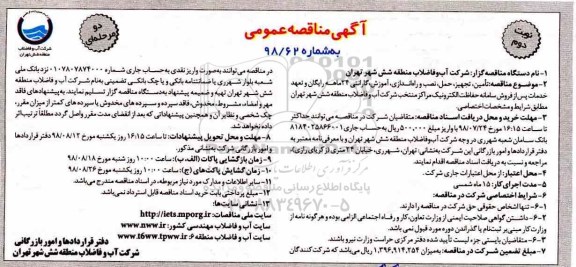 آگهی مناقصه عمومی
به‌شماره ۹۸/۶۲
نوبت دوم
دو مرحله‌ای
شرکت آب و فاضلاب منطقه شش تهران
۱- نام دستگاه مناقصه گزار: شرکت آب و فاضلاب منطقه شش شهر تهران
۲- موضوع مناقصه: تأمین، تجهیز، حمل، نصب و راه‌اندازی، آموزش، گارانتی ۲۴ ساعت رایگان و تعهد
خدمات پس از فروش سامانه حفاظت الکترونیک مراکز منتخب شرکت آب و فاضلاب منطقه شش شهر تهران
مطابق شرایط و مشخصات اختصاصی.
۳- مهلت خرید و محل دریافت اسناد مناقصه: متقاضیان شرکت در مناقصه می توانند حداکثر
تا ساعت ۱۶:۱۵ مورخ ۹۸/۰۷/۲۴ با واریز مبلغ ۵۰۰,۰۰۰ ریال به حساب جاری ۸۱۸۴۰۲۵۸۶۶۰۰۱
بانک سامان شعبه شهرری در وجه شرکت آب و فاضلاب منطقه شش شهر تهران و با معرفی‌نامه معتبر به
دفتر قراردادها و امور بازرگانی این شرکت به‌نشانی: تهران، شهرری، خیابان
مراجعه و نسبت به دریافت اسناد مناقصه اقدام نمایند.
۴- محل اعتبار: از محل اعتبارات جاری شرکت.
۵- مدت اجرای کار: ۱۵ ماه شمسی
۶- شرایط اختصاصی شرکت در مناقصه:
۶-۱- اشخاص حقوقی حق شرکت در مناقصه را دارند.
۶-۲- داشتن گواهی صلاحیت ایمنی از وزارت تعاون، کار و رفاه اجتماعی الزامی بوده و هرگونه نامه از
وزارت کار مبنی بر ثبت‌نام یا گذراندن دوره مورد قبول نمی باشد.
۶-۳- متقاضیان بایستی جزء لیست تأیید شده دفتر مرکزی حراست وزارت نیرو باشند.
۷- مبلغ تضمین شرکت در مناقصه: به‌میزان ۱,۳۹۶,۹۱۴,۲۵۴ ریال می‌باشد که شرکت‌کنندگان
در مناقصه می توانند به‌صورت واریز نقدی به‌حساب جاری شماره ۰۱۰۷۸۰۷۸۷۴۰۰۰ نزد بانک ملی
شعبه بلوار شهرری یا ضمانتنامه بانکی و یا چک بانکی تضمینی به‌نام شرکت آب و فاضلاب منطقه
شش شهر تهران تهیه و ضمیمه پیشنهاد به‌دستگاه مناقصه گزار تسلیم نمایند. به پیشنهادهای فاقد
مهر و امضاء، مشروط، مخدوش، فاقد سپرده و سپرده های مخدوش یا سپرده های کمتر از میزان مقرر،
چک شخصی و نظایر آن و همچنین پیشنهاداتی که بعد از انقضای مدت مقرر واصل گردد مطلقاً ترتیب‌اثر
داده نخواهد شد.
۸- مهلت و محل تحویل پیشنهادات: تا ساعت ۱۶:۱۵ روز یکشنبه مورخ ۹۸/۰۸/۱۲ دفتر قراردادها
و امور بازرگانی شرکت به‌نشانی مذکور.
۹- زمان بازگشایی پاکات (الف،ب): ساعت ۱۰:۰۰ روز شنبه مورخ ۹۸/۰۸/۱۸
۱۰- زمان گشایش پاکت‌های (ج): ساعت ۱۰:۰۰ مورخ ۹۸/۰۸/۲۶
۱۱- سایر اطلاعات و مدارک مورد نیاز مربوطه، در اسناد مناقصه مندرج می‌باشد.
۱۲- مبلغ پرداختی بابت خرید اسناد مناقصه قابل استرداد نمی‌باشد.
۱۳- نشانی سایت‌ها:
سایت ملی مناقصات: http://iets.mporg.ir
سایت آب و فاضلاب مهندسی کشور: www.nww.ir
سایت آب و فاضلاب منطقه ۶: www.t6ww.tpww.ir
دفتر قراردادها و امور بازرگانی
شرکت آب و فاضلاب منطقه شش شهر تهران